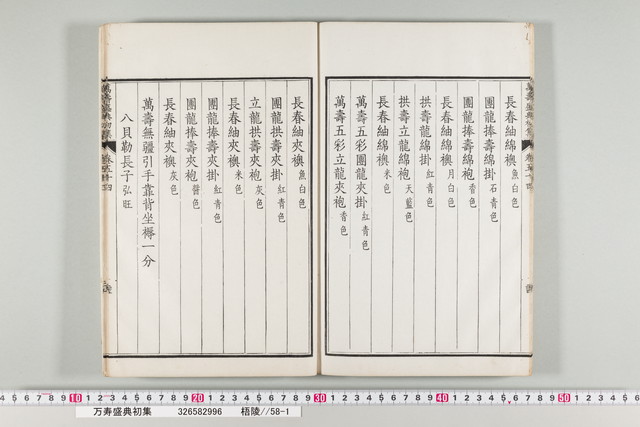 長春紬綿襖 魚白色
團龍捧壽綿掛 石青色
團龍捧壽綿袍 香色
長春紬綿襖 月白色
拱壽立龍綿掛 紅青色
拱壽立龍綿袍 天藍色
長春紬綿襖 米色
萬壽五彩團龍夾掛 紅青色
萬壽五彩立龍夾袍 香色
長春紬夾襖 魚白色
團龍拱壽夾掛 紅青色
立龍拱壽夾袍 灰色
長春紬夾襖 米色
團龍捧壽夾掛 紅青色
團龍捧壽夾袍 醬色
長春紬夾襖 灰色
萬壽無疆引手靠背坐褥一分
八貝勒長子 弘旺
万寿盛典初集 326582996 梧陵//58-1
10 20 30 40 50